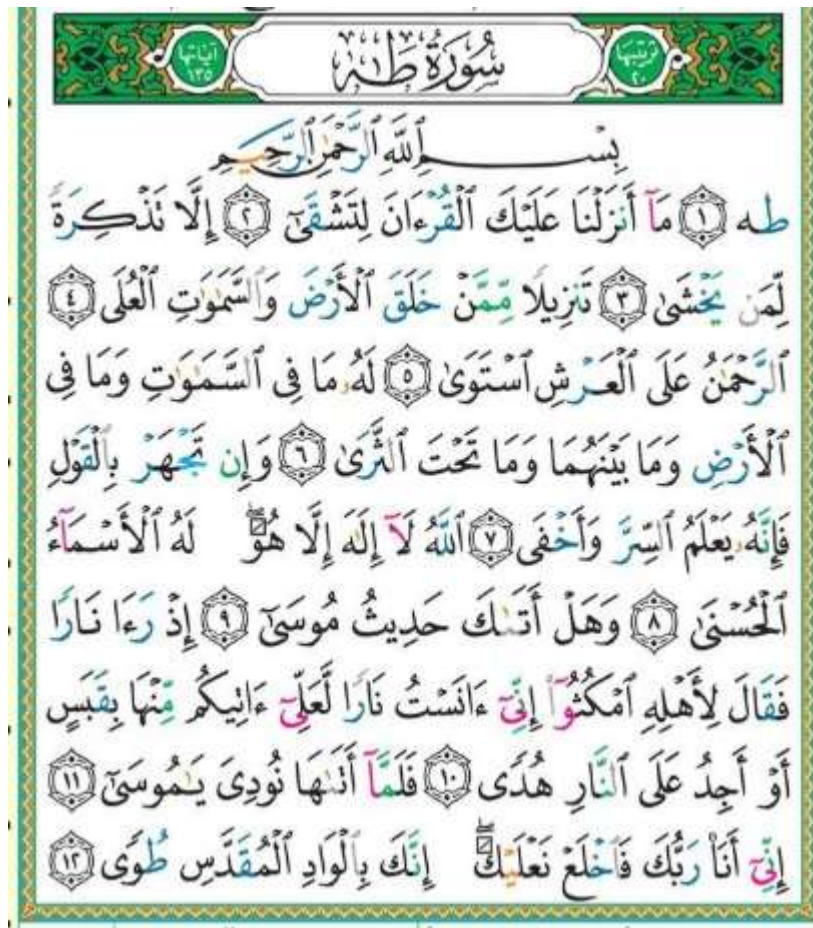 ترتيبها ٢٠ سُورَةُ طه آياتها ١٣٥
بِسْمِ ٱللَّهِ ٱلرَّحْمَٰنِ ٱلرَّحِيمِ
طه ١ مَآ أَنزَلْنَا عَلَيْكَ ٱلْقُرْءَانَ لِتَشْقَىٰٓ ٢ إِلَّا تَذْكِرَةً
لِّمَن يَخْشَىٰ ٣ تَنزِيلًا مِّمَّنْ خَلَقَ ٱلْأَرْضَ وَٱلسَّمَٰوَٰتِ ٱلْعُلَى ٤
ٱلرَّحْمَٰنُ عَلَى ٱلْعَرْشِ ٱسْتَوَىٰ ٥ لَهُۥ مَا فِى ٱلسَّمَٰوَٰتِ وَمَا فِى
ٱلْأَرْضِ وَمَا بَيْنَهُمَا وَمَا تَحْتَ ٱلثَّرَىٰ ٦ وَإِن تَجْهَرْ بِٱلْقَوْلِ
فَإِنَّهُۥ يَعْلَمُ ٱلسِّرَّ وَأَخْفَى ٧ ٱللَّهُ لَآ إِلَٰهَ إِلَّا هُوَ ۖ لَهُ ٱلْأَسْمَآءُ
ٱلْحُسْنَىٰ ٨ وَهَلْ أَتَىٰكَ حَدِيثُ مُوسَىٰٓ ٩ إِذْ رَءَا نَارًا
فَقَالَ لِأَهْلِهِ ٱمْكُثُوٓا۟ إِنِّىٓ ءَانَسْتُ نَارًا لَّعَلِّىٓ ءَاتِيكُم مِّنْهَا بِقَبَسٍ
أَوْ أَجِدُ عَلَى ٱلنَّارِ هُدًى ١٠ فَلَمَّآ أَتَىٰهَا نُودِىَ يَٰمُوسَىٰٓ ١١
إِنِّىٓ أَنَا۠ رَبُّكَ فَٱخْلَعْ نَعْلَيْكَ ۖ إِنَّكَ بِٱلْوَادِ ٱلْمُقَدَّسِ طُوًى ١٢